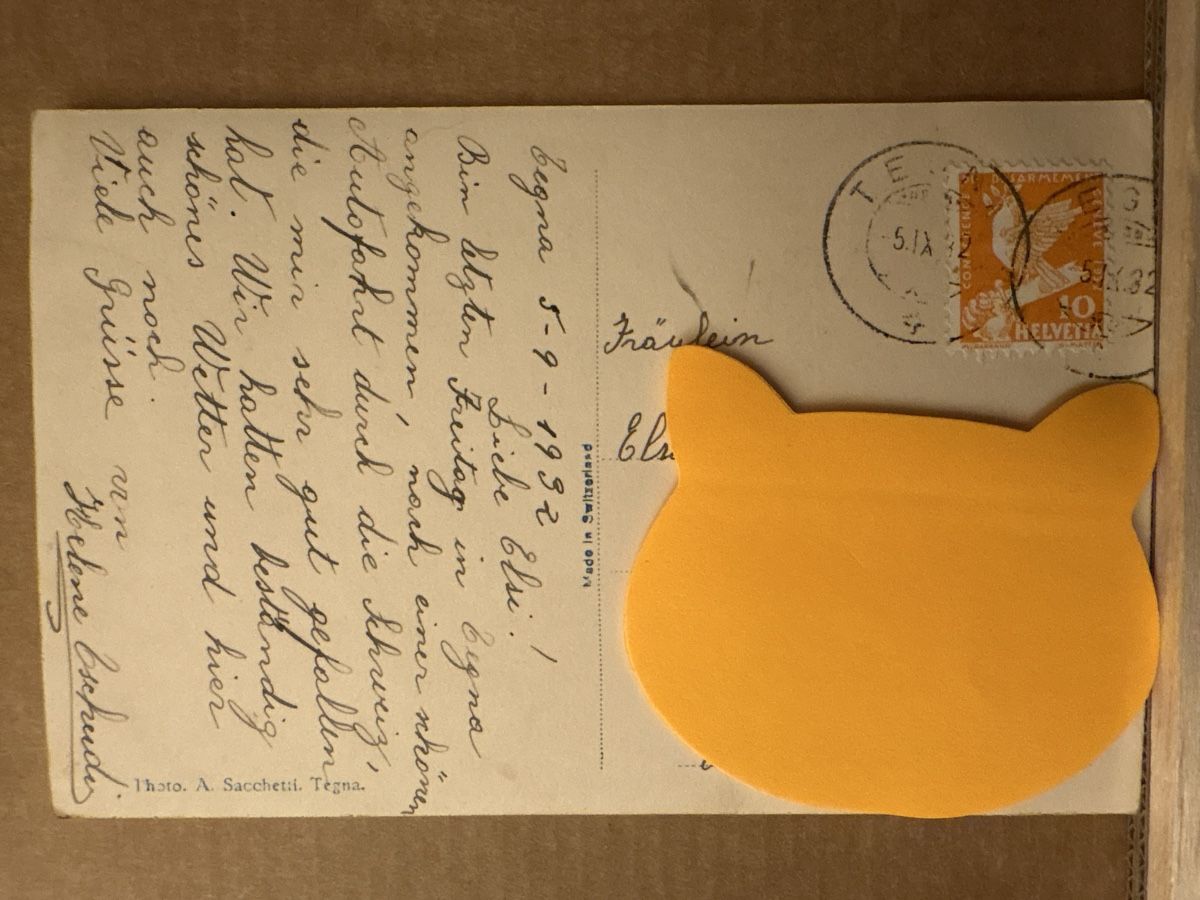 Tegna 5-9-1932
Liebe Elsi. !
Bin letzten Freitag in Tegna
angekommen, nach einer schönen
Autofahrt durch die Schweiz,
die mir sehr gut gefallen
hat. Wir hatten beständig
schönes Wetter und hier
auch noch.
Viele Grüsse von
Helene Tschudi.
Photo. A. Sacchetti. Tegna.
Made in Switzerland
TEGNA
5.IX.32
5.IX.32
CONFERENCE DU DESARMEMENT GENEVE
10
HELVETIA
Fräulein